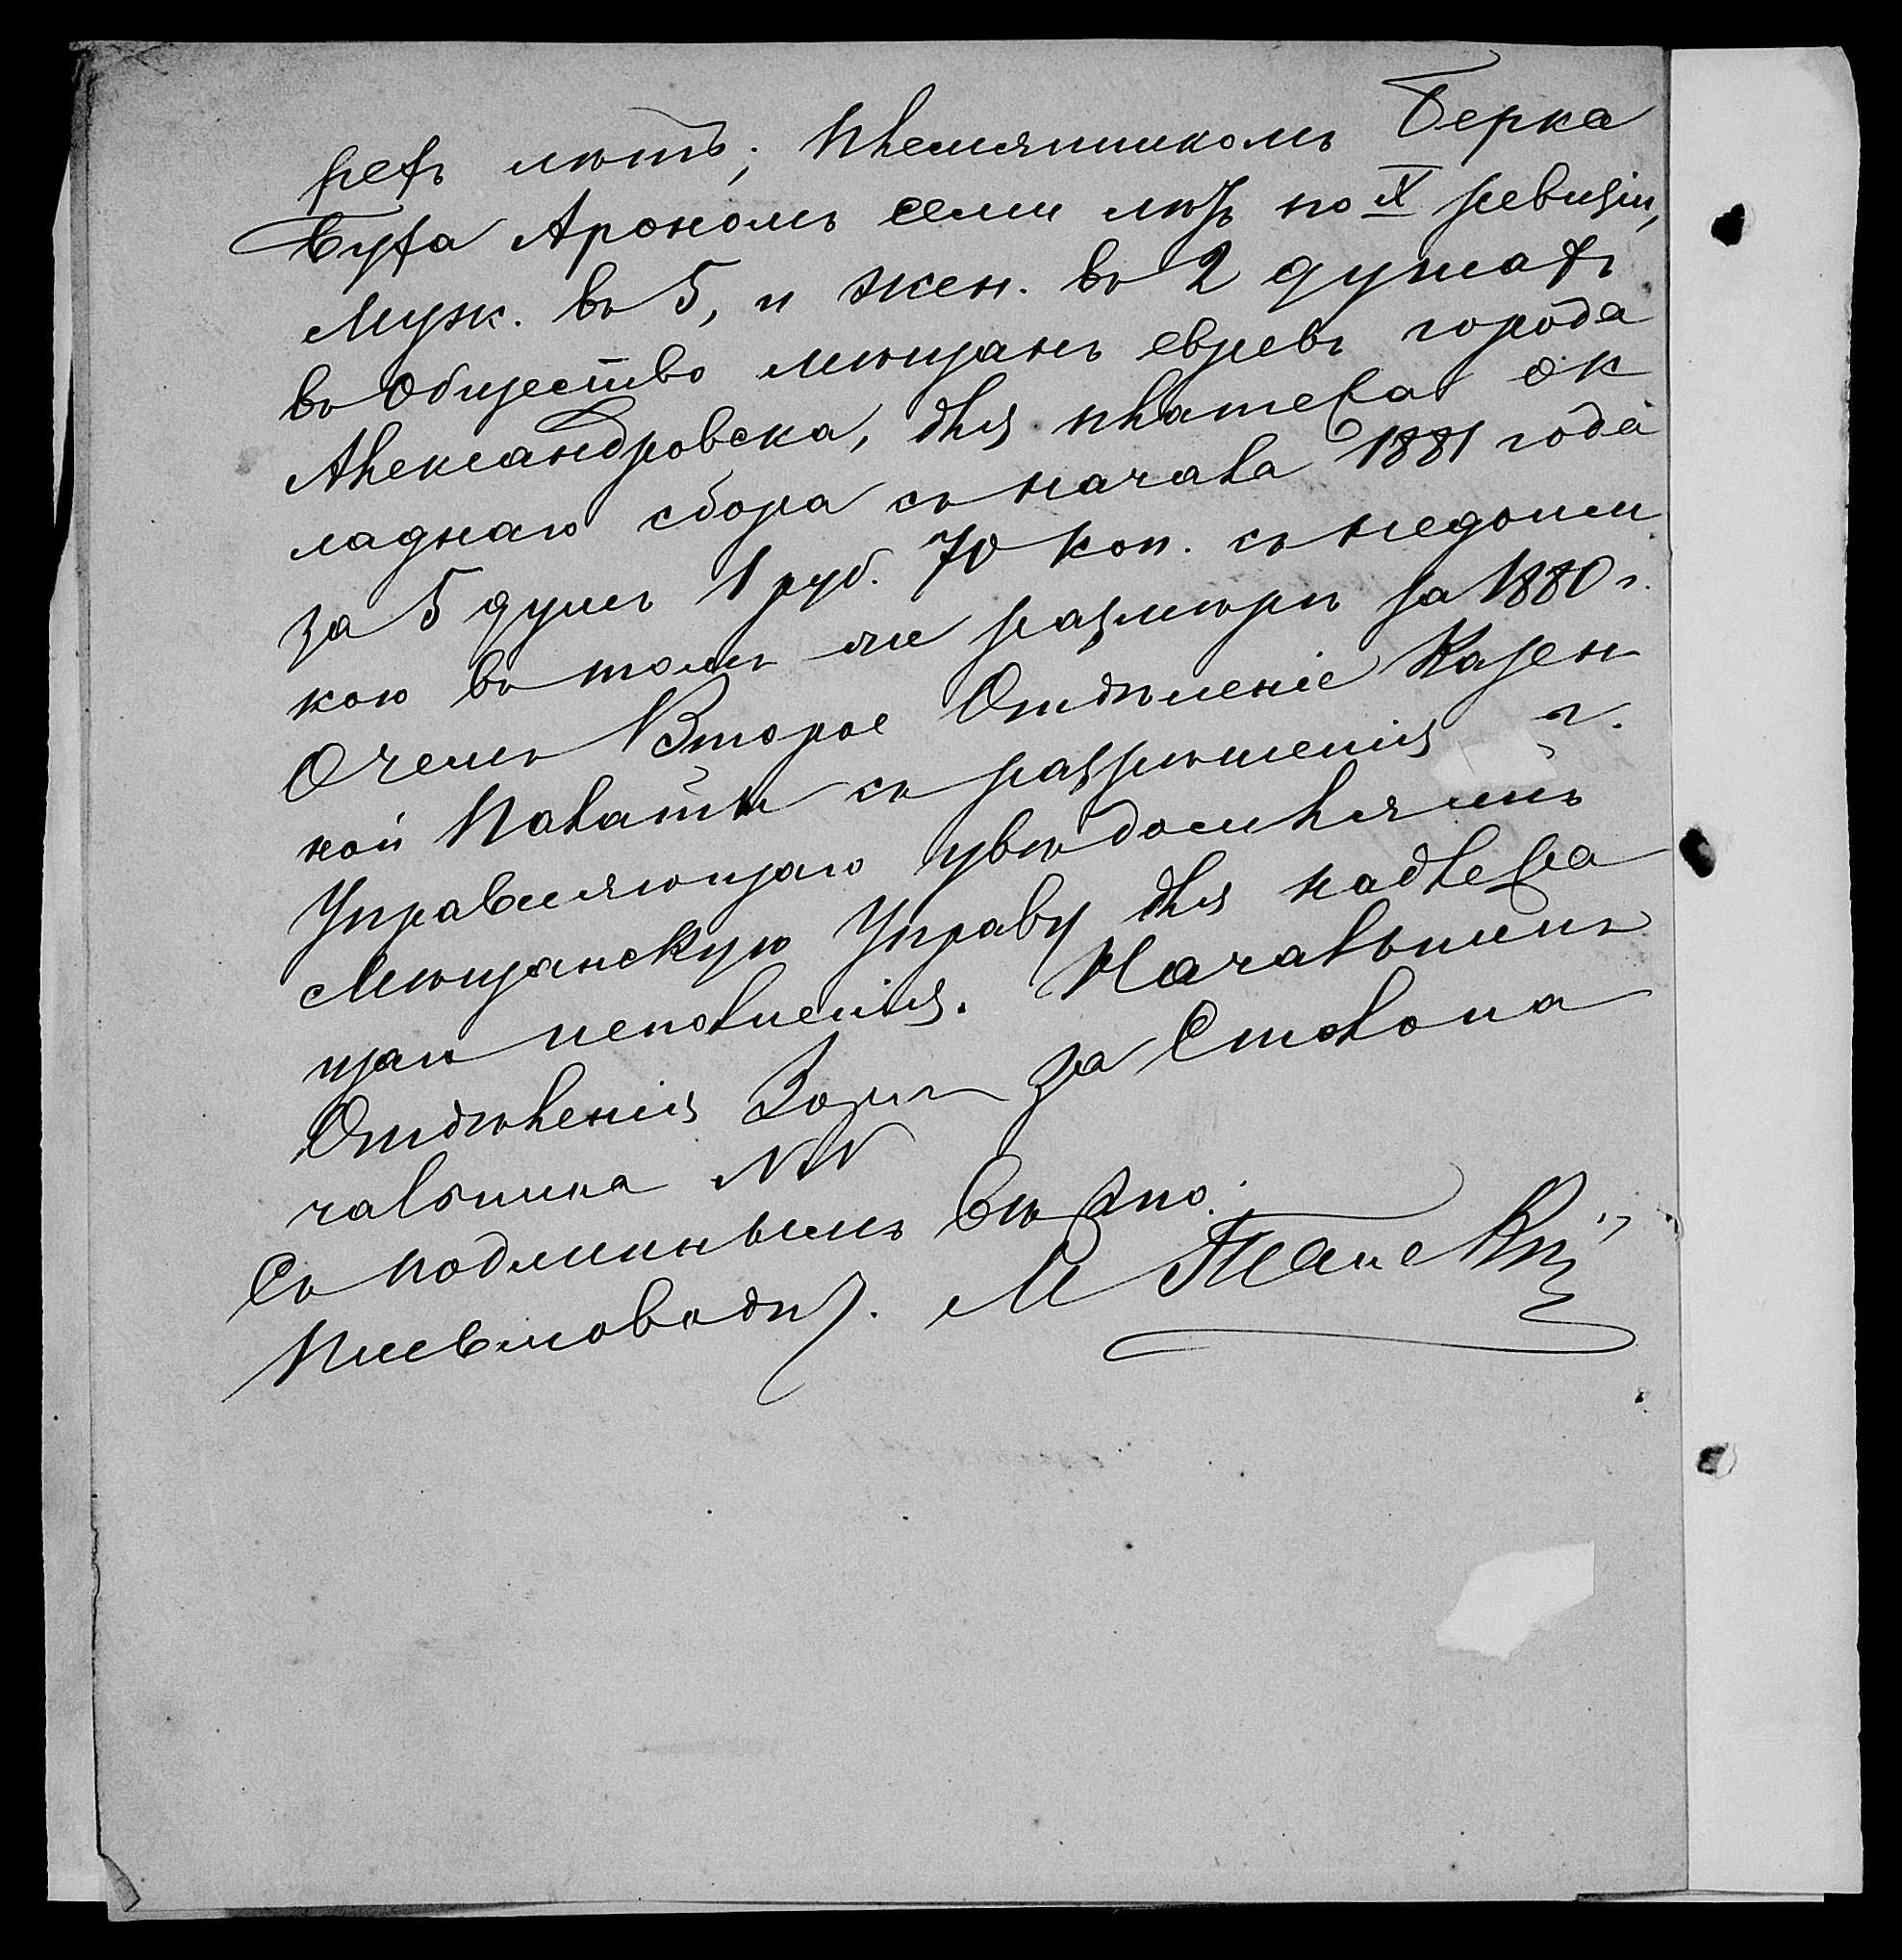 рехъ лѣтъ; племянникомъ Берка
Буха Арономъ семи лѣтъ по X ревизіи,
Муж. въ 5, и жен. въ 2 душахъ
въ Общество мѣщанъ евреевъ города
Александровска, для платежа ок
ладнаго сбора съ начала 1881 года
за 5 душъ 1 руб. 70 коп. съ недоим
кою въ томъ же размѣрѣ за 1880 г.
О чемъ Второе Отдѣленіе Казен
ной Палаты съ разрѣшенія г.
Управляющаго увѣдомляетъ
Мѣщанскую Управу для надлежа
щаго исполненія. Начальникъ
Отдѣленія за Столона
чальника NN
Съ подлиннымъ вѣрно:
Письмоводит. М